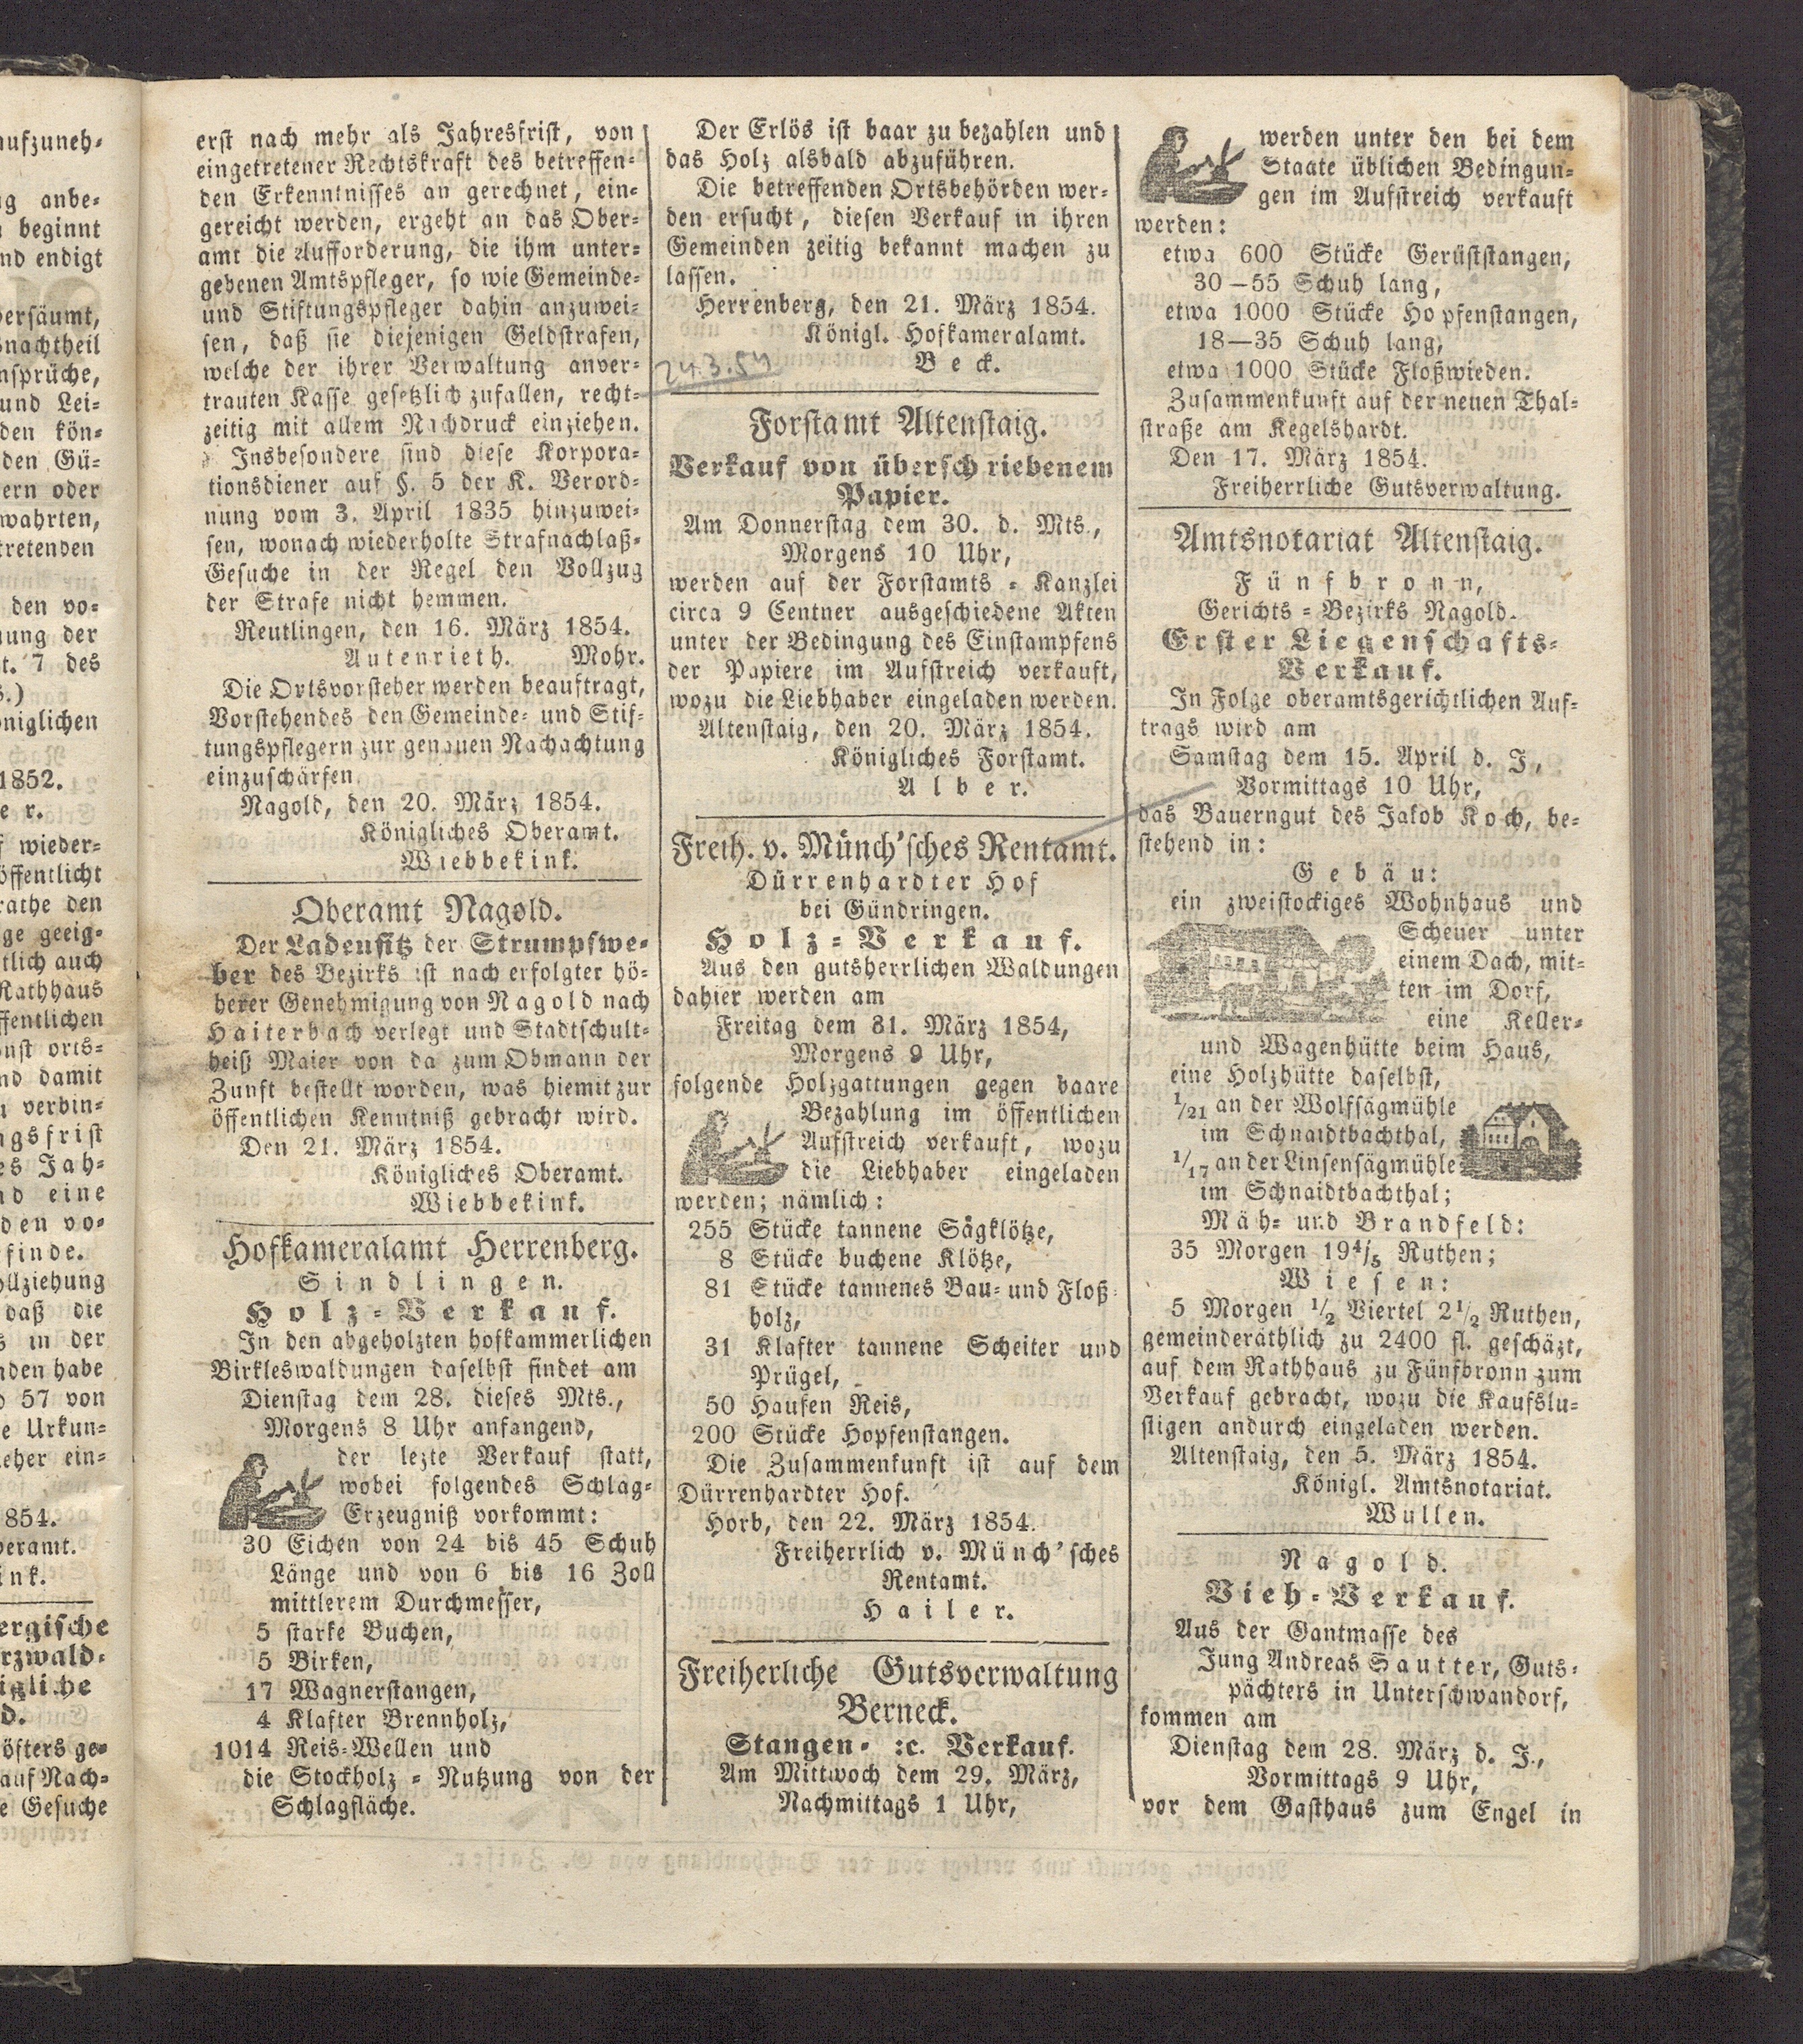 aufzuneh-
ng anbe-
beginnt
nd endigt
versäumt,
snachtheil
nsprüche,
und Lei-
den kön-
den Gü-
ern oder
wahrten,
tretenden
den vo-
nung der
t. 7 des
öniglichen
1852.
e r.
f wieder-
öffentlicht
rathe den
ge geeig-
tlich auch
Rathhaus
ffentlichen
onst orts-
nd damit
verbin-
ngsfrist
es Jah-
nd eine
den vo-
finde.
ollziehung
daß die
s in der
nden habe
57 von
e Urkun-
eher ein-
854.
eramt.
ink.
ergische
rzwald-
igliche
d.
öfters ge-
auf Nach-
e Gesuche
erst nach mehr als Jahresfrist, von
eingetretener Rechtskraft des betreffen-
den Erkenntnisses an gerechnet, ein-
gereicht werden, ergeht an das Ober-
amt die Aufforderung, die ihm unter-
gebenen Amtspfleger, so wie Gemeinde-
und Stiftungspfleger dahin anzuwei-
sen, daß sie diejenigen Geldstrafen,
welche der ihrer Verwaltung anver-
trauten Kasse gesetzlich zufallen, recht-
zeitig mit allem Nachdruck einziehen.
Insbesondere sind diese Korpora-
tionsdiener auf §. 5 der K. Verord-
nung vom 3. April 1835 hinzuwei-
sen, wonach wiederholte Strafnachlaß-
Gesuche in der Regel den Vollzug
der Strafe nicht hemmen.
Reutlingen, den 16. März 1854.
Autenrieth. Mohr.
Die Ortsvorsteher werden beauftragt,
Vorstehendes den Gemeinde- und Stif-
tungspflegern zur genauen Nachachtung
einzuschärfen.
Nagold, den 20. März 1854.
Königliches Oberamt.
Wiebbekink.
Oberamt Nagold.
Der Ladensitz der Strumpfwe-
ber des Bezirks ist nach erfolgter hö-
herer Genehmigung von Nagold nach
Haiterbach verlegt und Stadtschult-
heiß Maier von da zum Obmann der
Zunft bestellt worden, was hiemit zur
öffentlichen Kenntniß gebracht wird.
Den 21. März 1854.
Königliches Oberamt.
Wiebbekink.
Hofkameralamt Herrenberg.
Sindlingen.
Holz-Verkauf.
In den abgeholzten hofkammerlichen
Birkleswaldungen daselbst findet am
Dienstag dem 28. dieses Mts.,
Morgens 8 Uhr anfangend,
der lezte Verkauf statt,
wobei folgendes Schlag-
Erzeugniß vorkommt:
30 Eichen von 24 bis 45 Schuh
Länge und von 6 bis 16 Zoll
mittlerem Durchmesser,
5 starke Buchen,
5 Birken,
17 Wagnerstangen,
4 Klafter Brennholz,
1014 Reis-Wellen und
die Stockholz-Nutzung von der
Schlagfläche.
Der Erlös ist baar zu bezahlen und
das Holz alsbald abzuführen.
Die betreffenden Ortsbehörden wer-
den ersucht, diesen Verkauf in ihren
Gemeinden zeitig bekannt machen zu
lassen.
Herrenberg, den 21. März 1854.
Königl. Hofkameralamt.
Beck.
24.3.54
Forstamt Altenstaig.
Verkauf von überschriebenem
Papier.
Am Donnerstag dem 30. d. Mts.,
Morgens 10 Uhr,
werden auf der Forstamts-Kanzlei
circa 9 Centner ausgeschiedene Akten
unter der Bedingung des Einstampfens
der Papiere im Aufstreich verkauft,
wozu die Liebhaber eingeladen werden.
Altenstaig, den 20. März 1854.
Königliches Forstamt.
Alber.
Freih. v. Münch'sches Rentamt.
Dürrenhardter Hof
bei Gündringen.
Holz-Verkauf.
Aus den gutsherrlichen Waldungen
dahier werden am
Freitag dem 31. März 1854,
Morgens 9 Uhr,
folgende Holzgattungen gegen baare
Bezahlung im öffentlichen
Aufstreich verkauft, wozu
die Liebhaber eingeladen
werden; nämlich:
255 Stücke tannene Sägklötze,
8 Stücke buchene Klötze,
81 Stücke tannenes Bau- und Floß-
holz,
31 Klafter tannene Scheiter und
Prügel,
50 Haufen Reis,
200 Stücke Hopfenstangen.
Die Zusammenkunft ist auf dem
Dürrenhardter Hof.
Horb, den 22. März 1854.
Freiherrlich v. Münch'sches
Rentamt.
Hailer.
Freiherliche Gutsverwaltung
Berneck.
Stangen- ꝛc. Verkauf.
Am Mittwoch dem 29. März,
Nachmittags 1 Uhr,
werden unter den bei dem
Staate üblichen Bedingun-
gen im Aufstreich verkauft
werden:
etwa 600 Stücke Gerüststangen,
30—55 Schuh lang,
etwa 1000 Stücke Hopfenstangen,
18—35 Schuh lang,
etwa 1000 Stücke Floßwieden.
Zusammenkunft auf der neuen Thal-
straße am Kegelshardt.
Den 17. März 1854.
Freiherrliche Gutsverwaltung.
Amtsnotariat Altenstaig.
Fünfbronn,
Gerichts-Bezirks Nagold.
Erster Liegenschafts-
Verkauf.
In Folge oberamtsgerichtlichen Auf-
trags wird am
Samstag dem 15. April d. J.,
Vormittags 10 Uhr,
das Bauerngut des Jakob Koch, be-
stehend in:
Gebäu:
ein zweistockiges Wohnhaus und
Scheuer unter
einem Dach, mit-
ten im Dorf,
eine Keller-
und Wagenhütte beim Haus,
eine Holzhütte daselbst,
1/21 an der Wolfsägmühle
im Schnaidtbachthal,
1/17 an der Linsensägmühle
im Schnaidtbachthal;
Mäh- und Brandfeld:
35 Morgen 19 4/5 Ruthen;
Wiesen:
5 Morgen 1/2 Viertel 2 1/2 Ruthen,
gemeinderäthlich zu 2400 fl. geschäzt,
auf dem Rathhaus zu Fünfbronn zum
Verkauf gebracht, wozu die Kaufslu-
stigen andurch eingeladen werden.
Altenstaig, den 5. März 1854.
Königl. Amtsnotariat.
Wullen.
Nagold.
Vieh-Verkauf.
Aus der Gantmasse des
Jung Andreas Sautter, Guts-
pächters in Unterschwandorf,
kommen am
Dienstag dem 28. März d. J.,
Vormittags 9 Uhr,
vor dem Gasthaus zum Engel in